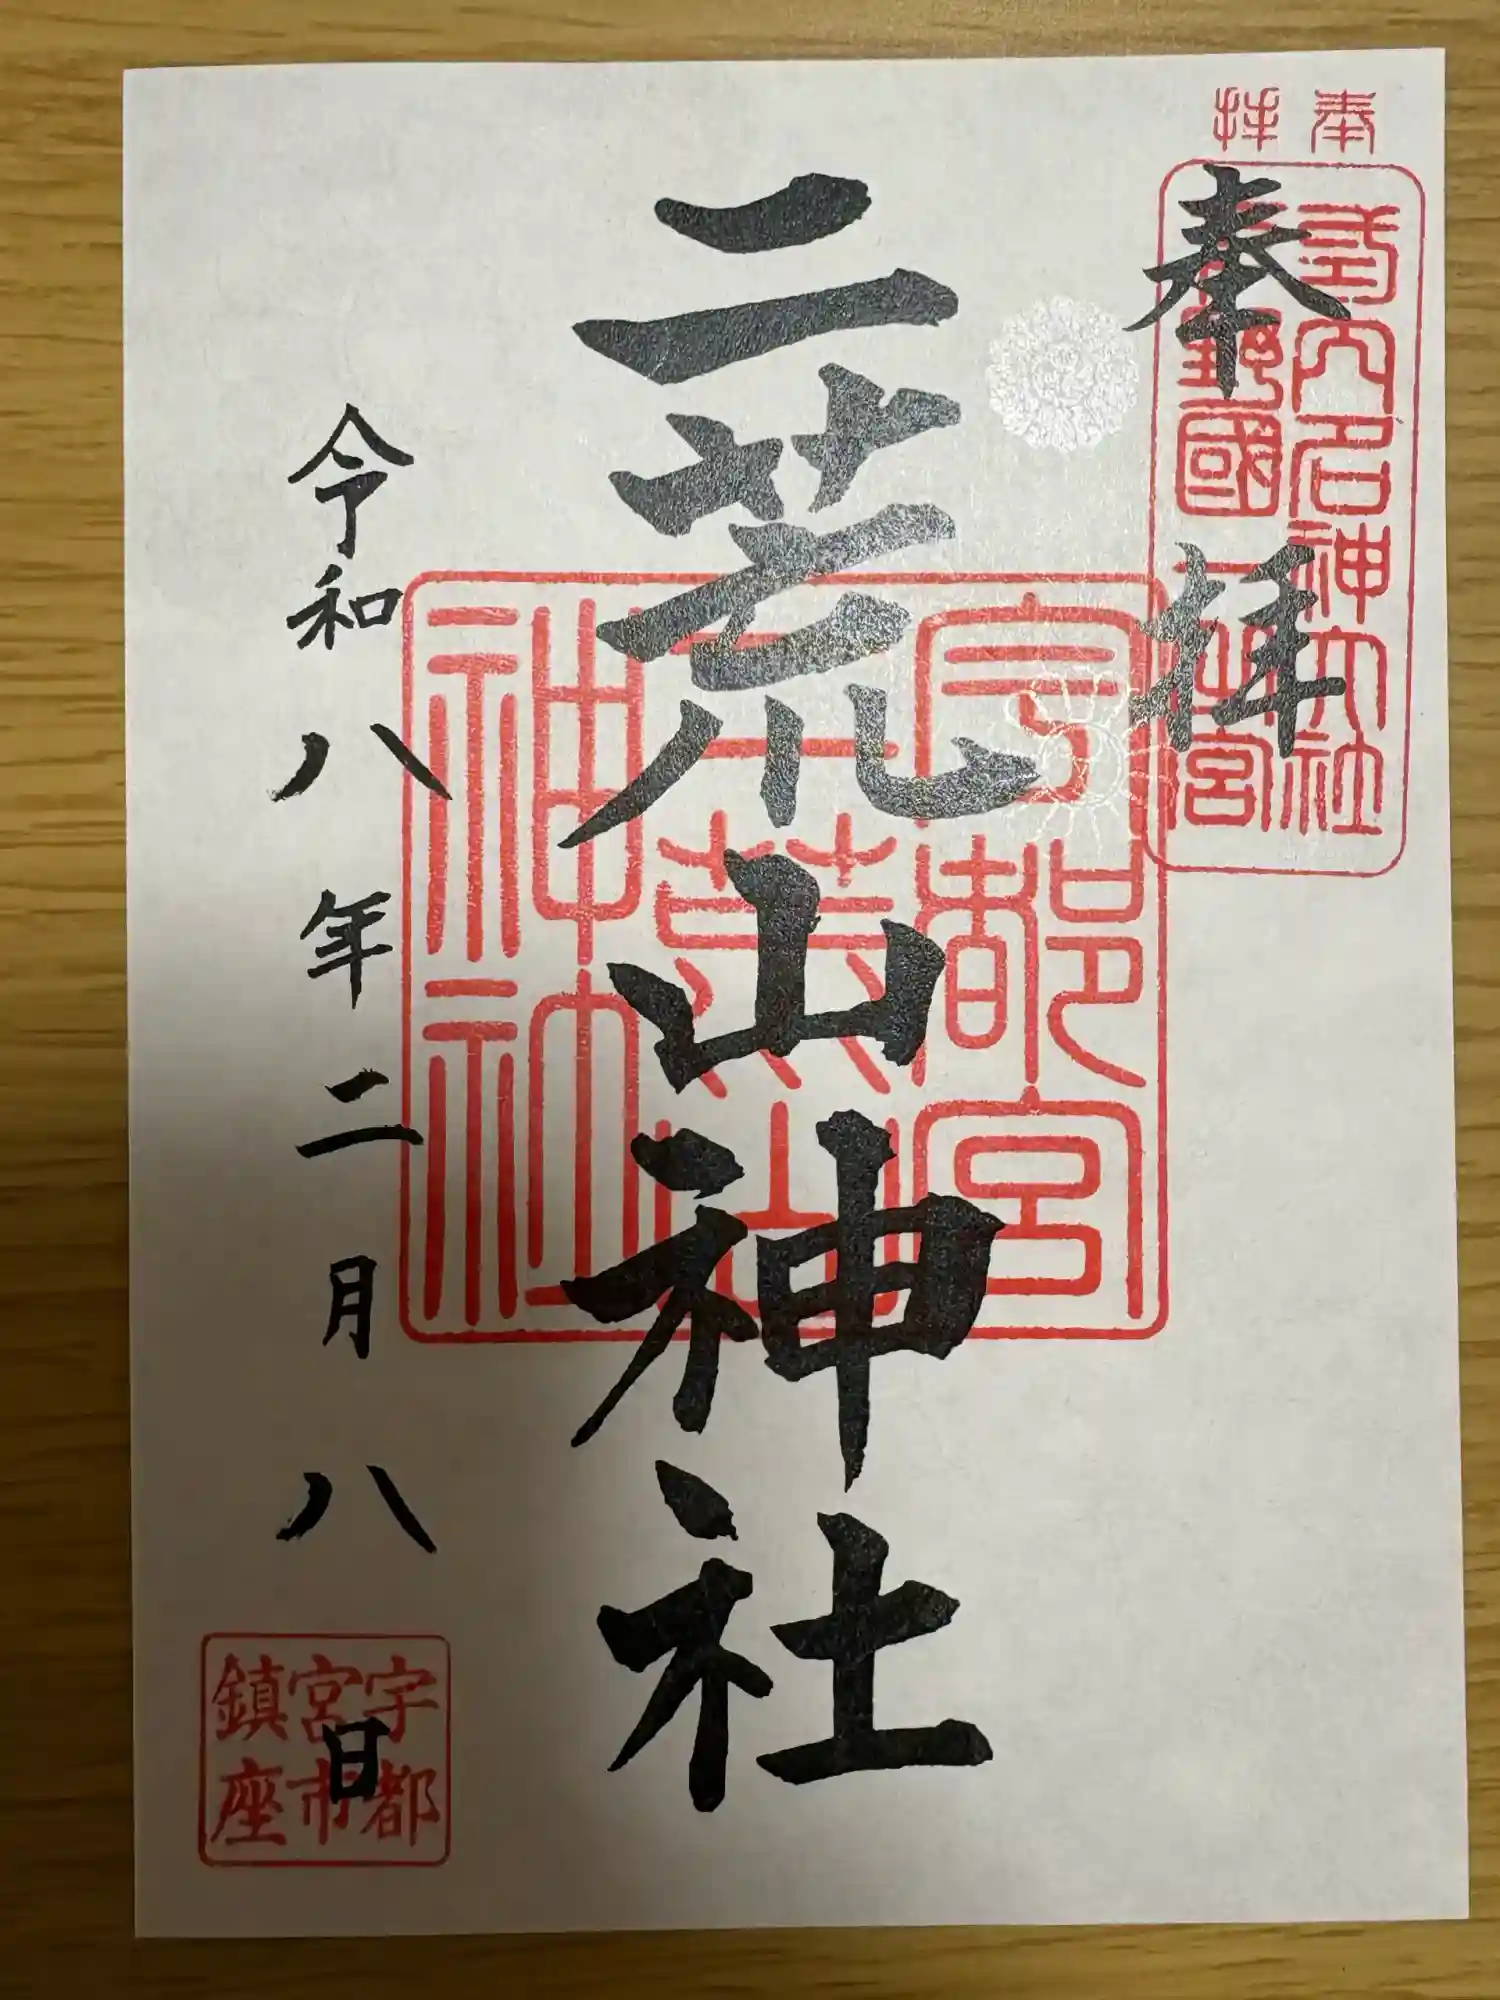 奉拝
奉拝
式内名神大社
下野國一之宮
二荒山神社
宇都宮
二荒山
神社
令和八年二月八日
宇都
宮市
鎮座